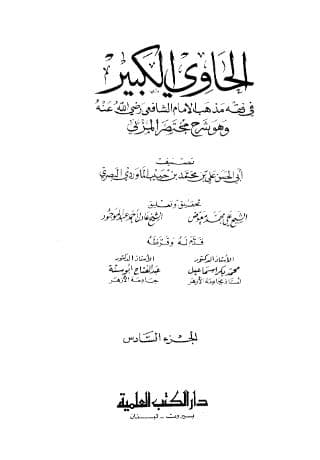 الحاوي الكبير
في فقه مذهب الإمام الشافعي رضي الله عنه
وهو شرح مختصر المزني
تصنيف
أبي الحسن علي بن محمد بن حبيب الماوردي البصري
تحقيق وتعليق
الشيخ علي محمد معوض الشيخ عادل أحمد عبد الموجود
قدم له وقرظه
الأستاذ الدكتور الأستاذ الدكتور
محمد بكر إسماعيل عبد الفتاح أبو سنة
أستاذ بجامعة الأزهر جامعة الأزهر
الجزء السادس
دار الكتب العلمية
بيروت - لبنان